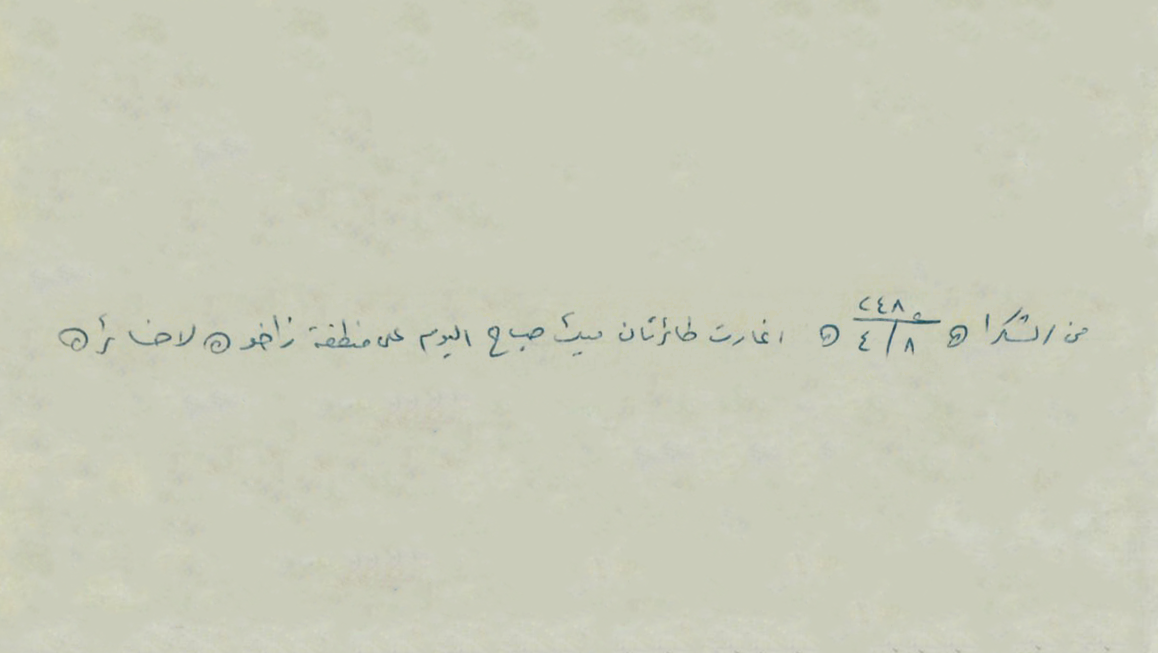 من الشكرا ٢٤٨ ٨/٤ اغارت طائرتان ميك صباح اليوم على منطقة زاخو لا خسائر